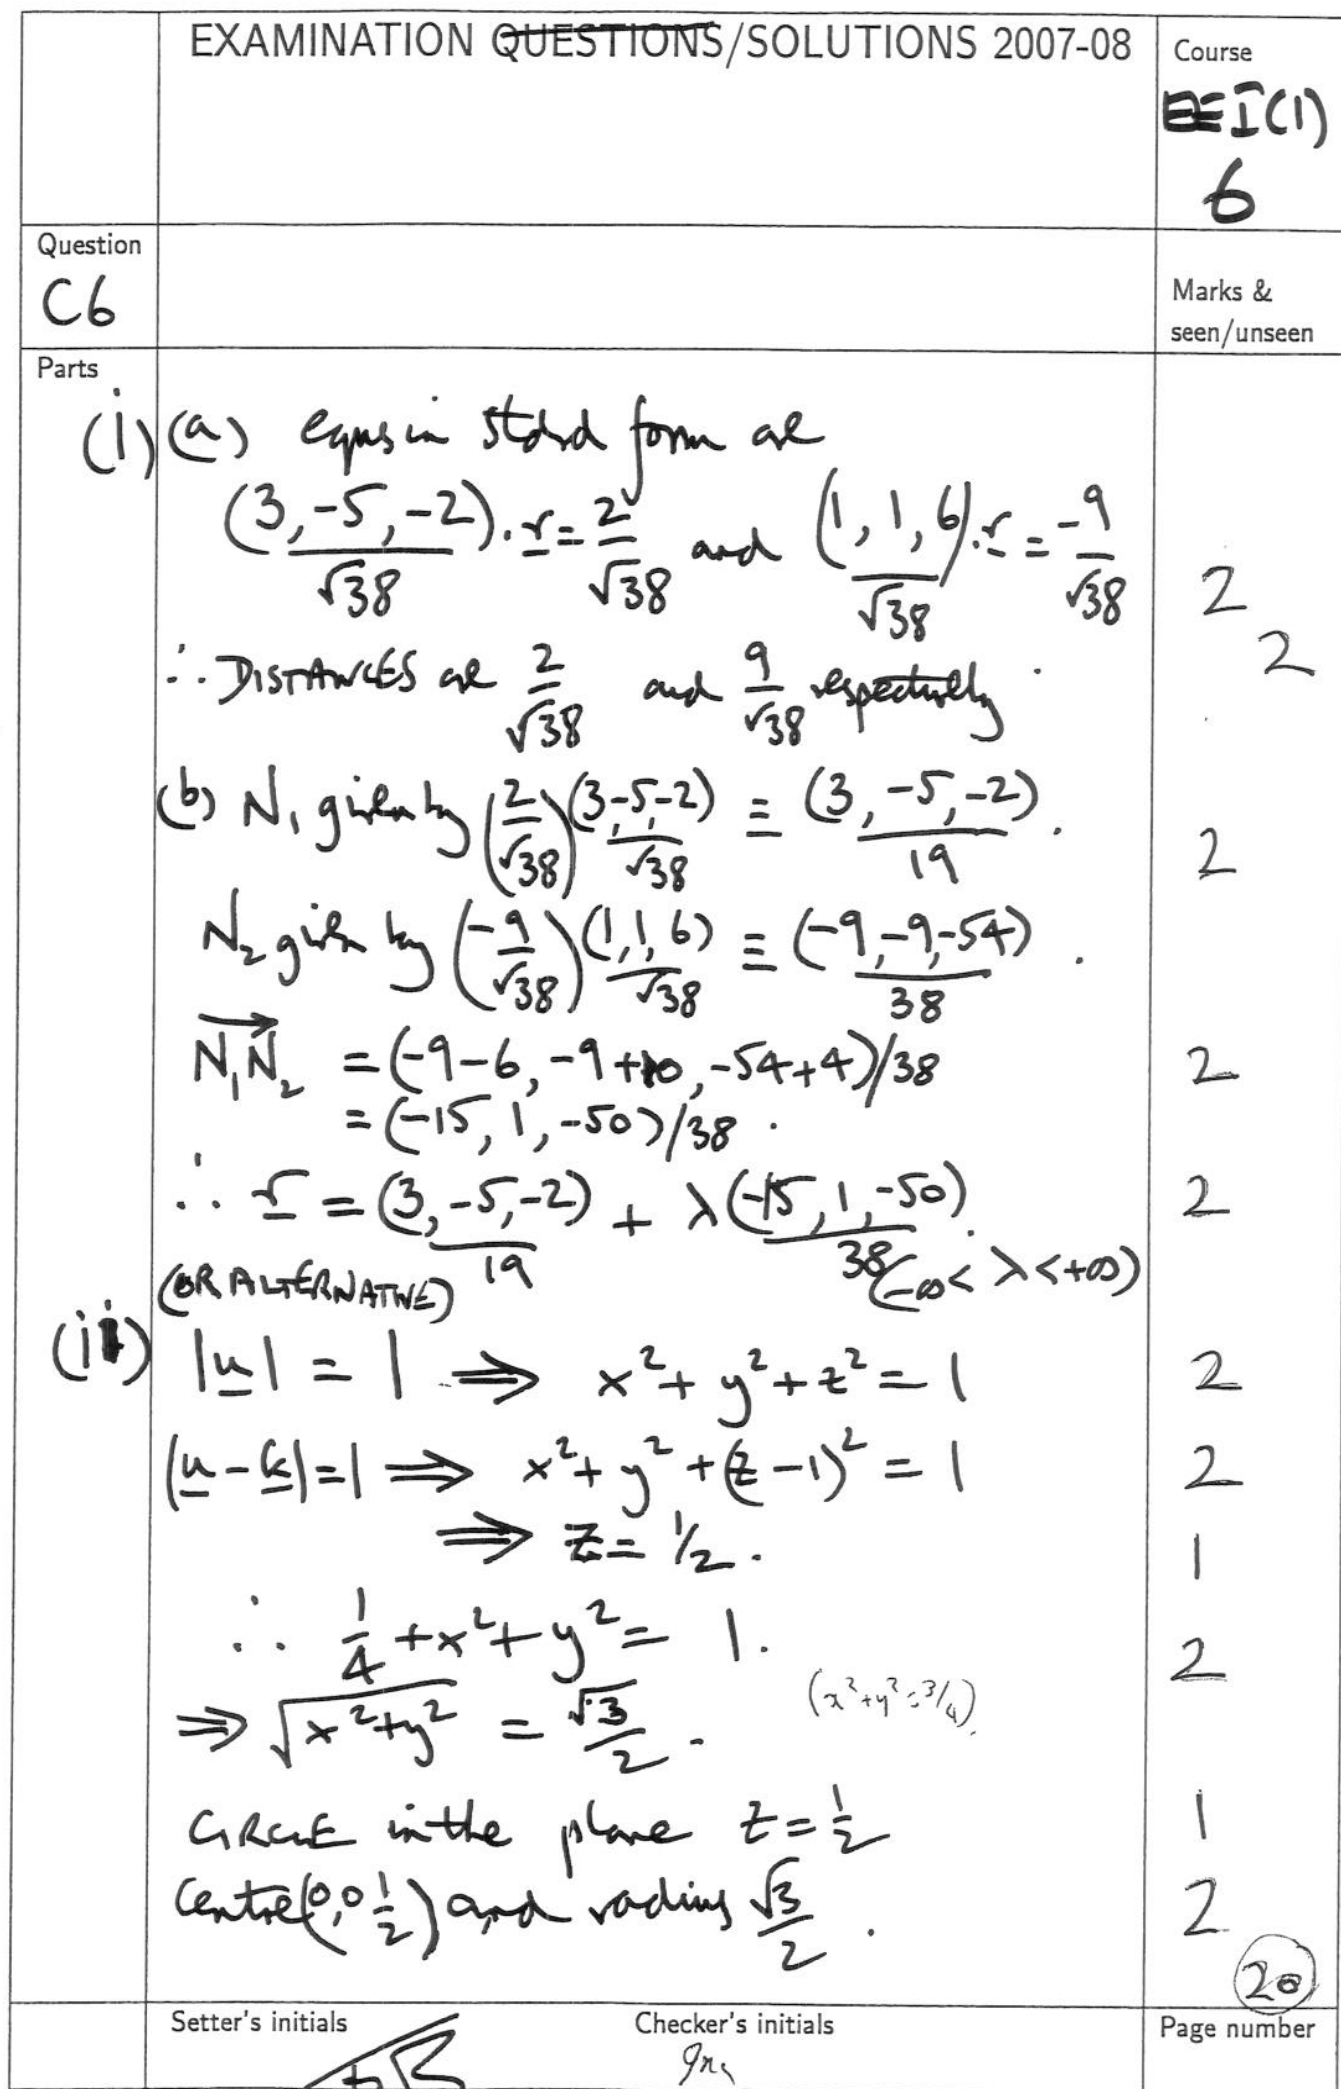 EXAMINATION QUESTIONS/SOLUTIONS 2007-08
Course
EE I(1)
6
Question
C6
Marks &
seen/unseen
Parts
(i) (a) eqns in stdrd form are
(3,-5,-2)/√38 . r = 2/√38 and (1,1,6)/√38 . r = -9/√38 2
∴ DISTANCES are 2/√38 and 9/√38 respectively. 2
(b) N₁ given by (2/√38) (3,-5,-2)/√38 ≡ (3,-5,-2)/19 . 2
N₂ given by (-9/√38) (1,1,6)/√38 ≡ (-9,-9,-54)/38 .
N₁N₂ = (-9-6, -9+10, -54+4)/38 2
= (-15, 1, -50)/38 .
∴ r = (3,-5,-2)/19 + λ(-15,1,-50)/38 . 2
(OR ALTERNATIVE) (-∞ < λ < +∞)
(ii) |u| = 1 ⇒ x² + y² + z² = 1 2
|u - k| = 1 ⇒ x² + y² + (z-1)² = 1 2
⇒ z = 1/2 . 1
∴ 1/4 + x² + y² = 1. 2
⇒ √(x²+y²) = √3/2 . (x²+y²=3/4).
CIRCLE in the plane z = 1/2 1
Centre (0,0 1/2) and radius √3/2 . 2
20
Setter's initials
Checker's initials
Page number